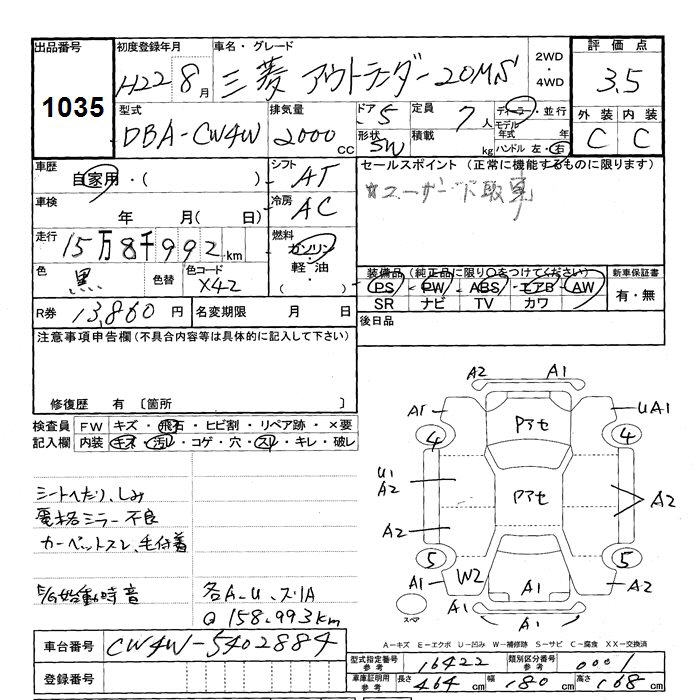 出品番号 1035
初度登録年月 H22 8月
車名・グレード 三菱 アウトランダー 20MS
2WD・4WD
評価点 3.5
外装 C 内装 C
型式 DBA-CW4W
排気量 2000cc
ドア 5
形状 SW
定員 7人
積載 kg
ディーラー・並行
モデル年式 年
ハンドル 左・右
車歴 自家用・( )
シフト AT
セールスポイント(正常に機能するものに限ります)
*ユーザー下取車
車検 年 月( 日)
冷房 AC
走行 15万8千992km
燃料 ガソリン・軽油・( )
色 黒 色替 色コード X42
装備品(純正品に限り○をつけてください)
PS PW ABS エアB AW
SR ナビ TV カワ
新車保証書 有・無
R券 13,860円 名変期限 月 日
後日品
注意事項申告欄(不具合内容等は具体的に記入して下さい)
修復歴 有〔箇所 〕
検査員記入欄
FW キズ・飛石・ヒビ割・リペア跡・×要
内装 キズ・汚れ・コゲ・穴・スレ・キレ・破レ
シートへたり、しみ
電格ミラー不良
カーペットスレ、毛付着
E/G始動時音
各A.U.スリA
Q 158,993km
A2 A1
A1 UA1
4 Pアセ 4
U1 A2 Pアセ A2
A2
5 5
A1 W2 A1 A1
スペア A1 A1
A-キズ E-エクボ U-凹み W-補修跡 S-サビ C-腐食 XX-交換済
車台番号 CW4W-5402884
登録番号
型式指定番号 参考 16422 類別区分番号 参考 0001
車庫証明用 参考 長さ 464cm 幅 180cm 高さ 168cm